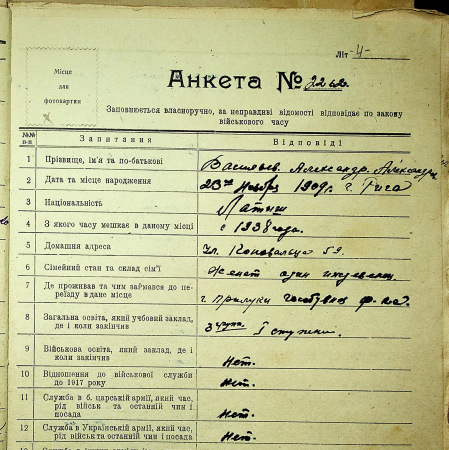 Літ -4-
Місце
для
фотокартки
Анкета № 2262.
Заповнюється власноручно, за неправдиві відомості відповідає по закону
військового часу
№№ п-п Запитання Відповіді
1 Прізвище, ім'я та по-батькові Васильев. Александр. Александр
2 Дата та місце народження 23го Ноября 1909г. г. Рига
3 Національність Латыш
4 З якого часу мешкає в даному місці с 1938 года.
5 Домашня адреса Ул. Коновальца 59.
6 Сімейний стан та склад сім'ї Женат один
7 Де проживав та чим займався до пе-
реїзду в дане місце г. Прилуки ф-ка.
8 Загальна освіта, який учбовий заклад,
де і коли закінчив 3 групп. I ступени.
9 Військова освіта, який заклад, де і
коли закінчив Нет.
10 Відношення до військової служби
до 1917 року Нет.
11 Служба в б. царській армії, який час,
рід військ та останній чин і
посада Нет.
12 Служба в Українській армії, який час,
рід військ та останній чин і посада Нет.